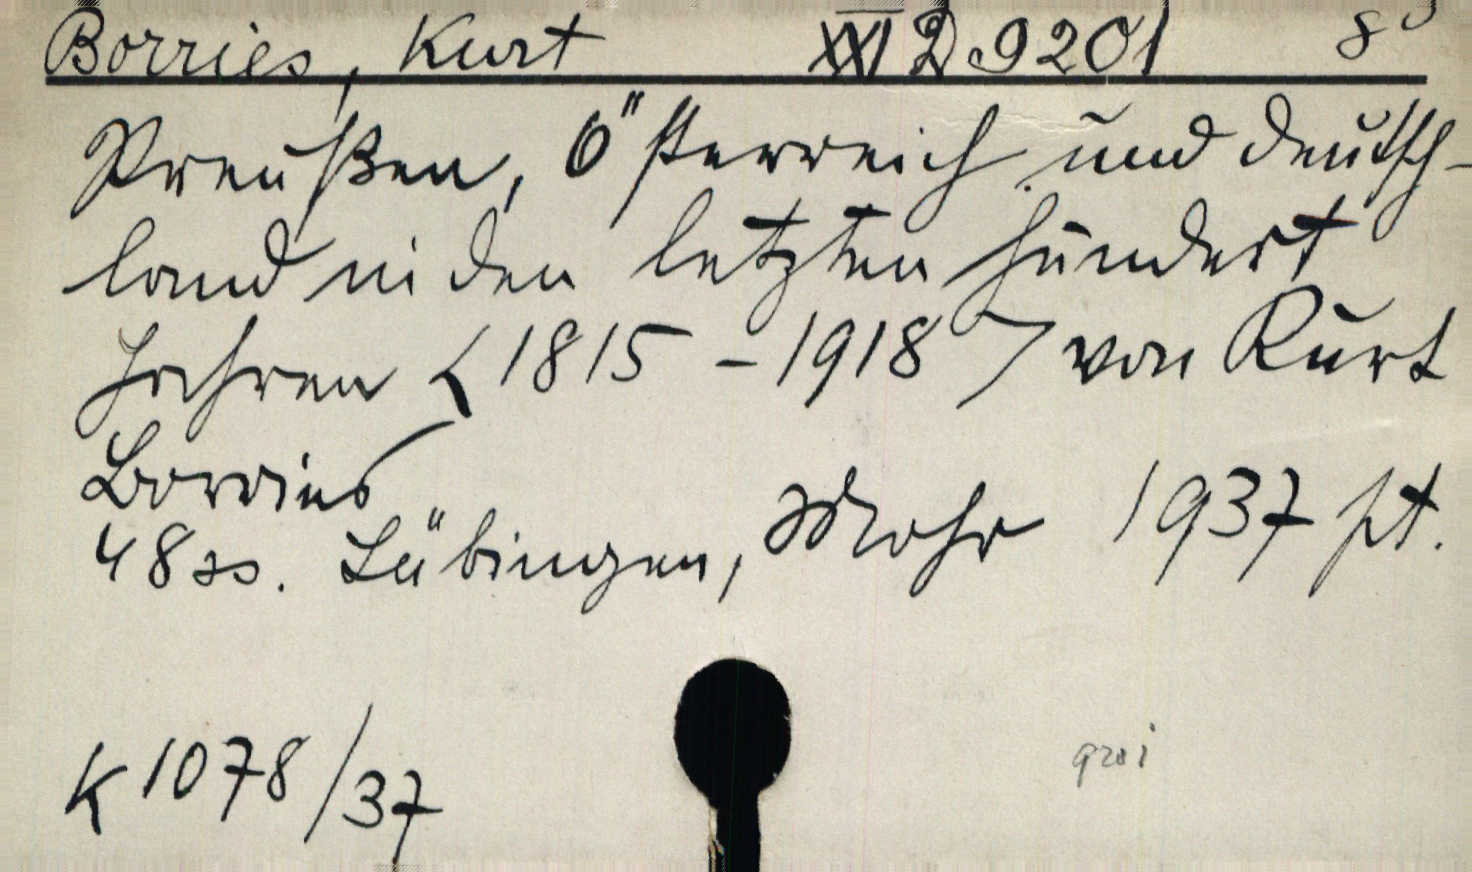 Borries, Kurt XXI D 9201 8°
Preußen, Österreich und Deutsch-
land in den letzten hundert
Jahren <1815-1918> von Kurt
Borries
48 ss. Tübingen, Mohr 1937 pt.
K 1078/37